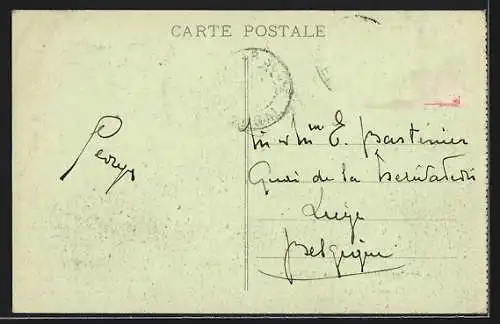 CARTE POSTALE
M et Mme E. Bastinier
Quai de la Dérivation
Liège
Belgique